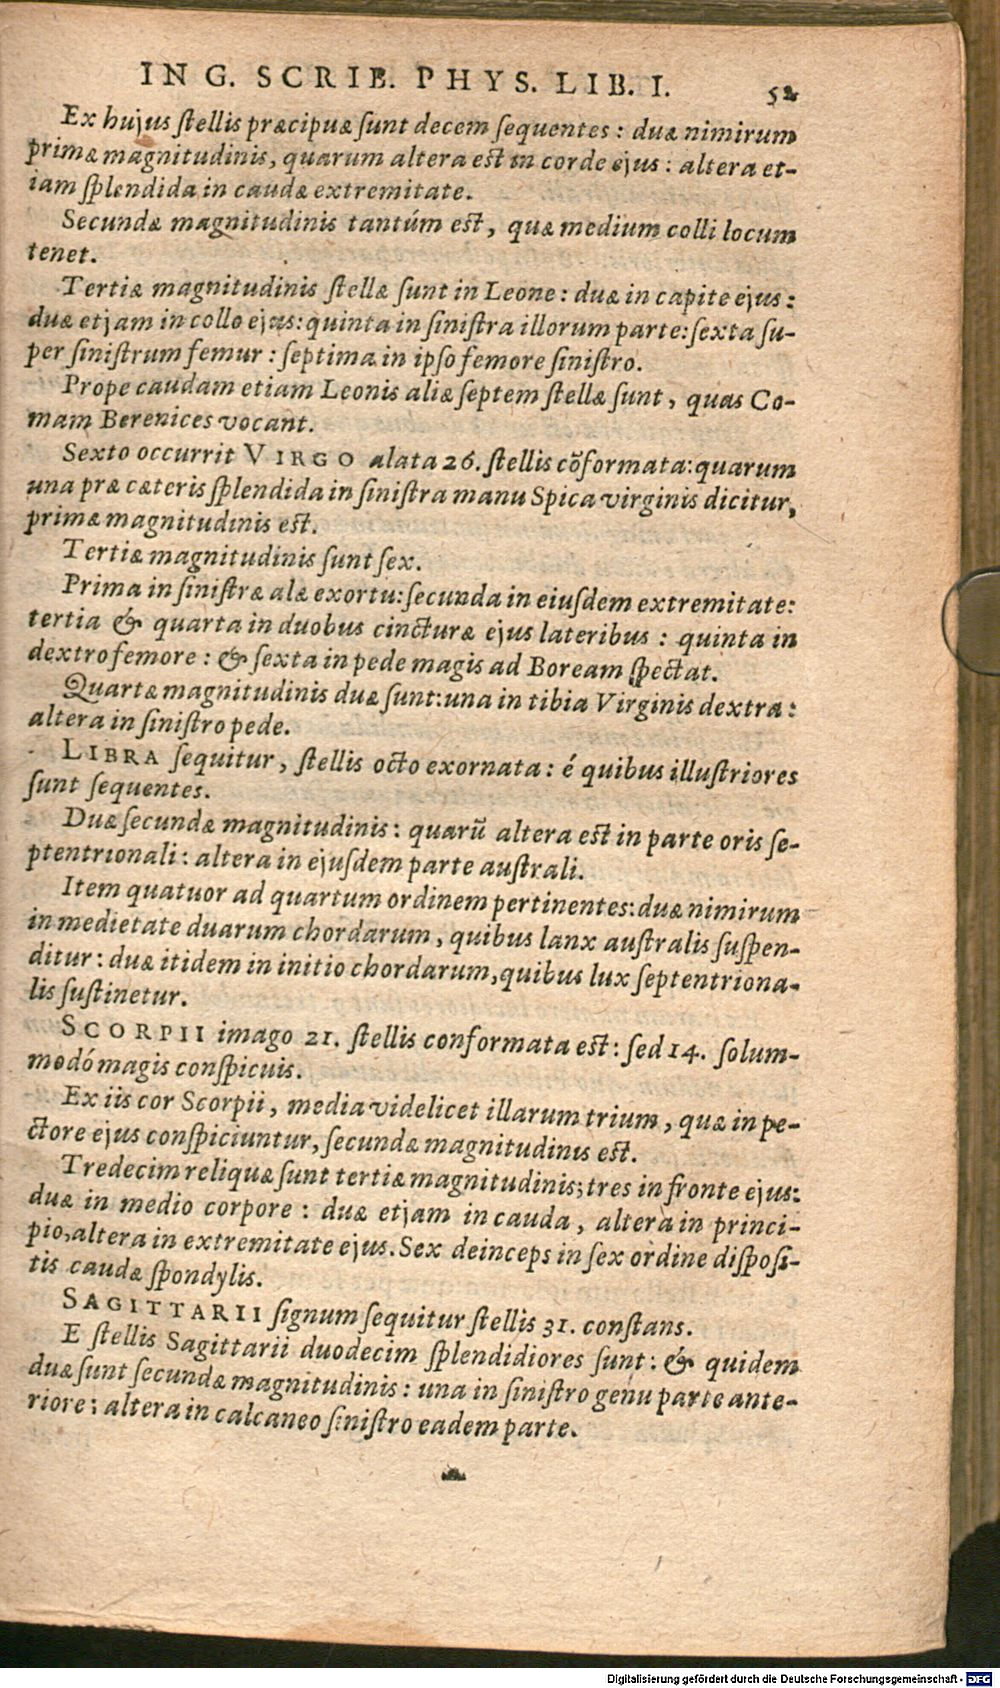 IN G. SCRIB. PHYS. LIB. I. 52
Ex hujus stellis præcipuæ sunt decem sequentes : duæ nimirum
primæ magnitudinis, quarum altera est in corde ejus : altera et-
iam splendida in caudæ extremitate.
Secundæ magnitudinis tantúm est, quæ medium colli locum
tenet.
Tertiæ magnitudinis stellæ sunt in Leone : duæ in capite ejus :
duæ etjam in collo ejus: quinta in sinistra illorum parte: sexta su-
per sinistrum femur : septima in ipso femore sinistro.
Prope caudam etiam Leonis aliæ septem stellæ sunt, quas Co-
mam Berenices vocant.
Sexto occurrit VIRGO alata 26. stellis cõformata: quarum
una præ cæteris splendida in sinistra manu Spica virginis dicitur,
primæ magnitudinis est.
Tertiæ magnitudinis sunt sex.
Prima in sinistræ alæ exortu: secunda in eiusdem extremitate:
tertia & quarta in duobus cincturæ ejus lateribus : quinta in
dextro femore : & sexta in pede magis ad Boream spectat.
Quartæ magnitudinis duæ sunt: una in tibia Virginis dextra :
altera in sinistro pede.
LIBRA sequitur, stellis octo exornata : é quibus illustriores
sunt sequentes.
Duæ secundæ magnitudinis : quarũ altera est in parte oris se-
ptentrionali : altera in ejusdem parte australi.
Item quatuor ad quartum ordinem pertinentes: duæ nimirum
in medietate duarum chordarum, quibus lanx australis suspen-
ditur : duæ itidem in initio chordarum, quibus lux septentriona-
lis sustinetur.
SCORPII imago 21. stellis conformata est : sed 14. solum-
modó magis conspicuis.
Ex iis cor Scorpii, media videlicet illarum trium, quæ in pe-
ctore ejus conspiciuntur, secundæ magnitudinis est.
Tredecim reliquæ sunt tertiæ magnitudinis; tres in fronte ejus:
duæ in medio corpore : duæ etjam in cauda, altera in princi-
pio, altera in extremitate ejus. Sex deinceps in sex ordine disposi-
tis caudæ spondylis.
SAGITTARII signum sequitur stellis 31. constans.
E stellis Sagittarii duodecim splendidiores sunt : & quidem
duæ sunt secundæ magnitudinis : una in sinistro genu parte ante-
riore : altera in calcaneo sinistro eadem parte.
Digitalisierung gefördert durch die Deutsche Forschungsgemeinschaft - DFG